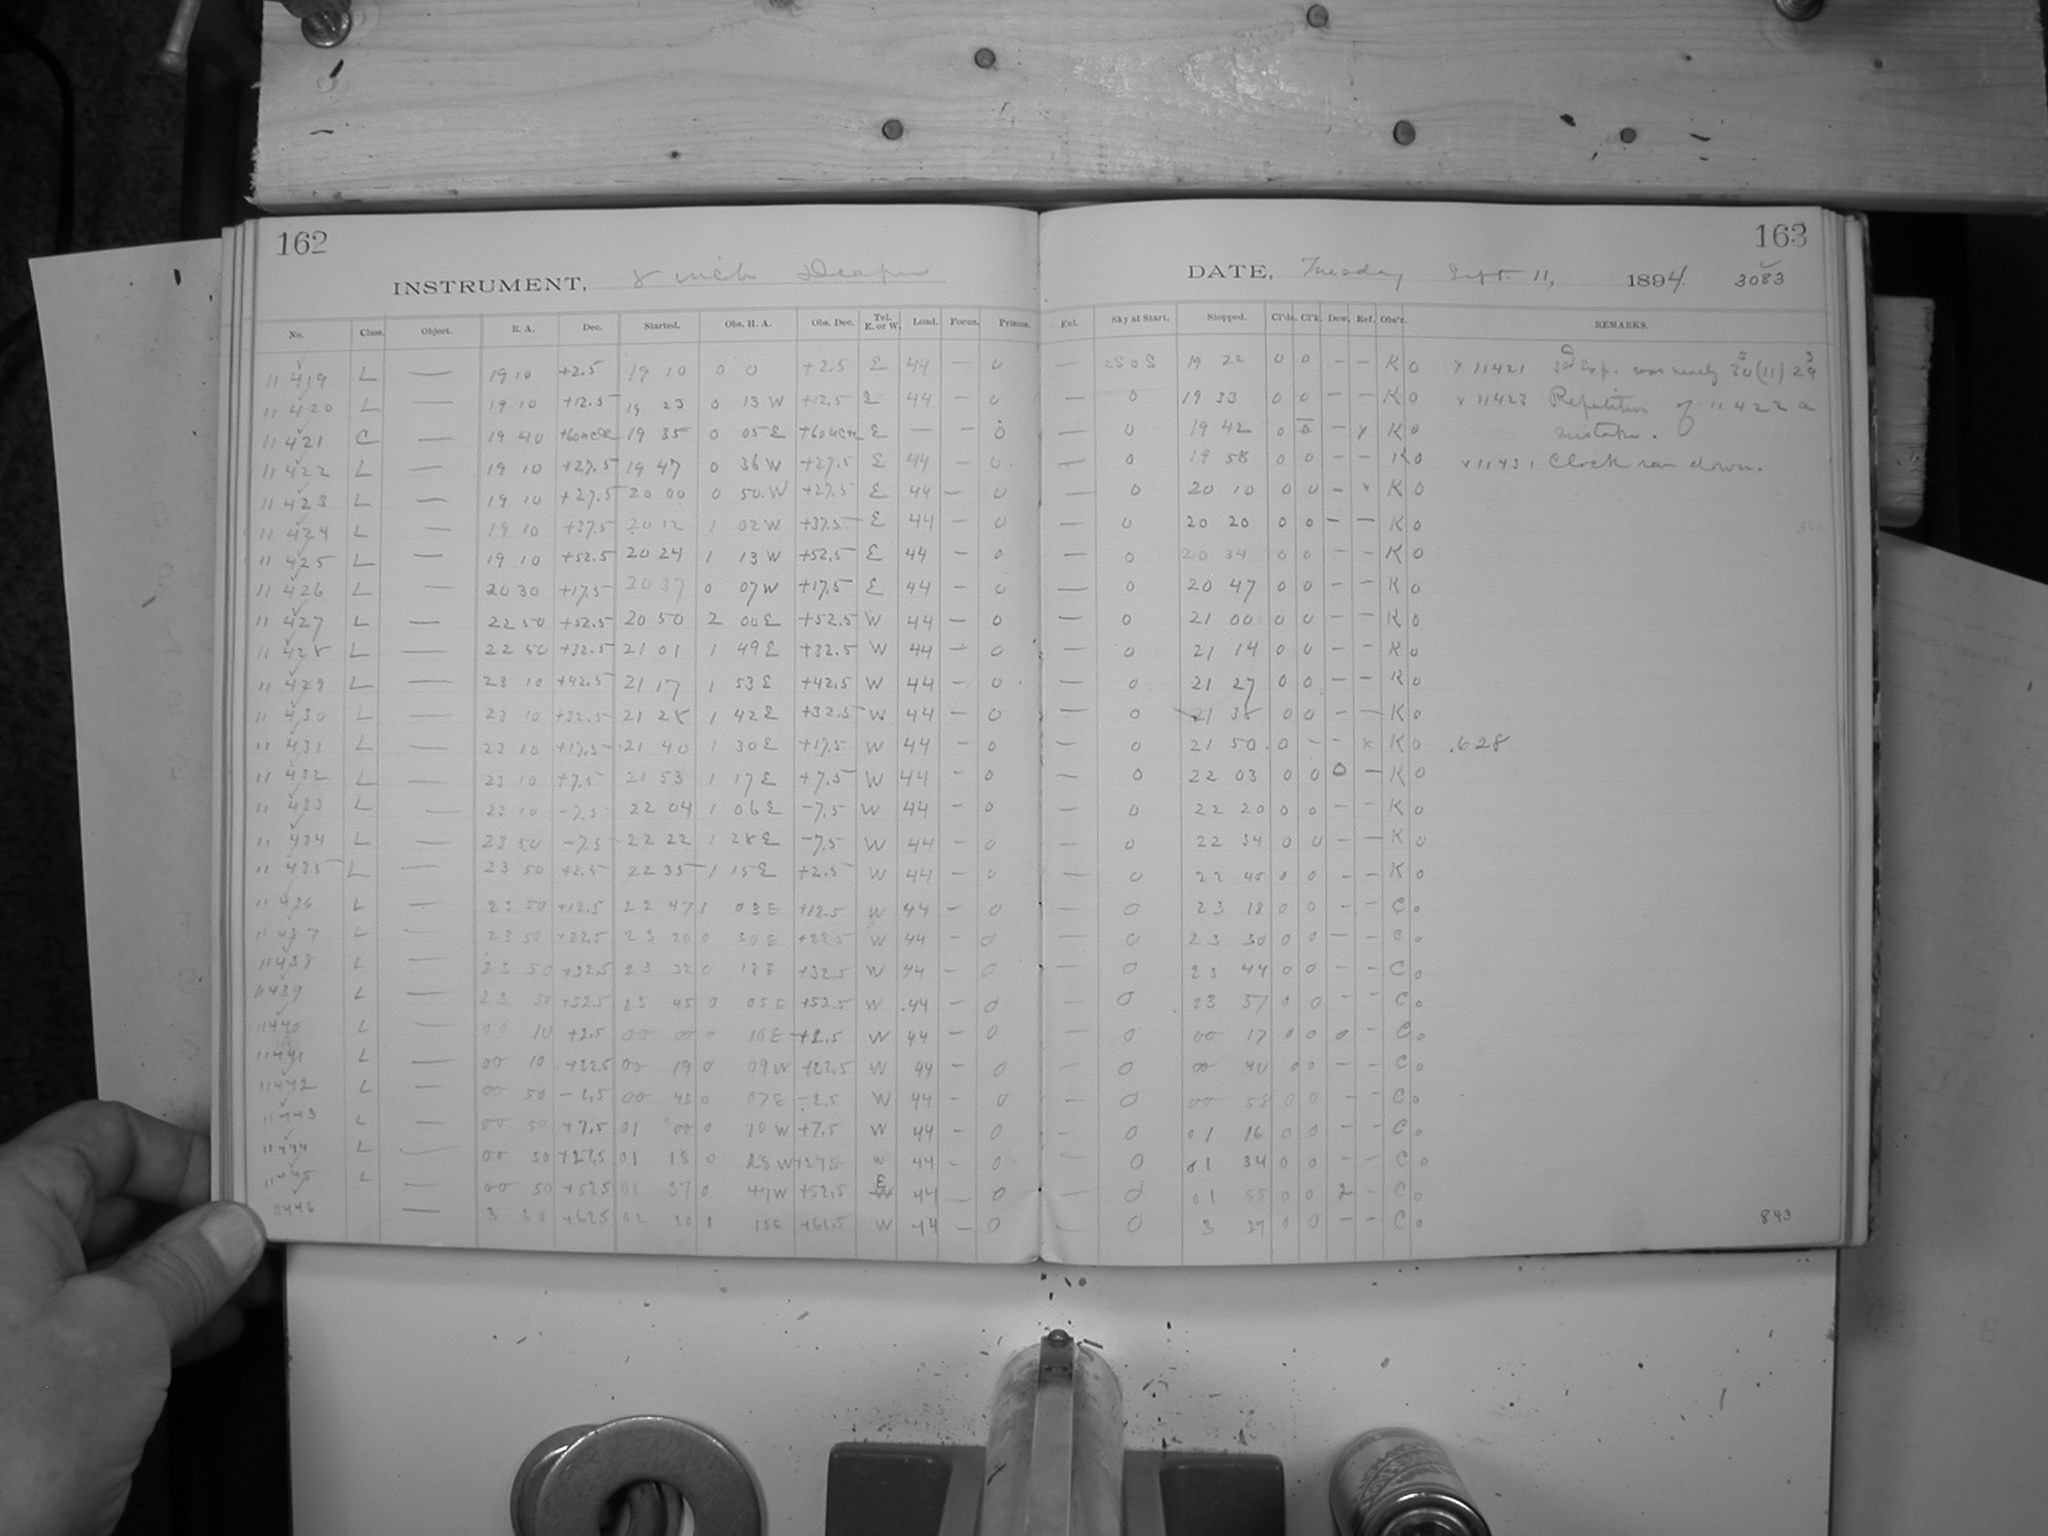 162
163
INSTRUMENT, 8 inch Draper
DATE, Tuesday Sept. 11, 1894. 3083
No. Class. Object. R. A. Dec. Started. Obs. H. A. Obs. Dec. Tel. E. or W. Load. Focus. Prisms. Ent. Sky at Start. Stopped. Cl'ds. Cl'k. Dew. Ref. Obs'r. REMARKS.
11 419 L — 19 10 +2.5 19 10 0 0 +2.5 E 44 — 0 — 19 22 0 0 — — K 0 x 11421
11 420 L — 19 10 +12.5 19 23 0 13 W +12.5 E 44 — 0 — 0 19 33 0 0 — — K 0 x 11423 Repetition of 11422 a
11 421 C — 19 40 19 35 0 05 E E — — 0 — 0 19 42 0 0 — x K 0 mistake.
11 422 L — 19 10 +27.5 19 47 0 36 W +27.5 E 44 — 0 — 0 19 58 0 0 — — K 0 x 11431 Clock ran down.
11 423 L — 19 10 +27.5 20 00 0 50 W +27.5 E 44 — 0 — 0 20 10 0 0 — x K 0
11 424 L — 19 10 +37.5 20 12 1 02 W +37.5 E 44 — 0 — 0 20 20 0 0 — — K 0
11 425 L — 19 10 +52.5 20 24 1 13 W +52.5 E 44 — 0 — 0 20 34 0 0 — — K 0
11 426 L — 20 30 +17.5 20 37 0 07 W +17.5 E 44 — 0 — 0 20 47 0 0 — — K 0
11 427 L — 22 50 +52.5 20 50 2 00 E +52.5 W 44 — 0 — 0 21 00 0 0 — — K 0
11 428 L — 22 50 +32.5 21 01 1 49 E +32.5 W 44 — 0 — 0 21 14 0 0 — — K 0
11 429 L — 23 10 +42.5 21 17 1 53 E +42.5 W 44 — 0 — 0 21 27 0 0 — — K 0
11 430 L — 23 10 +32.5 21 28 1 42 E +32.5 W 44 — 0 — 0 21 38 0 0 — — K 0
11 431 L — 23 10 +17.5 21 40 1 30 E +17.5 W 44 — 0 — 0 21 50 0 — — x K 0 .628
11 432 L — 23 10 +7.5 21 53 1 17 E +7.5 W 44 — 0 — 0 22 03 0 0 0 — K 0
11 433 L — 23 10 -7.5 22 04 1 06 E -7.5 W 44 — 0 — 0 22 20 0 0 — — K 0
11 434 L — 23 50 -7.5 22 22 1 28 E -7.5 W 44 — 0 — 0 22 34 0 0 — — K 0
11 435 L — 23 50 +2.5 22 35 1 15 E +2.5 W 44 — 0 — 0 22 45 0 0 — — K 0
11 436 L — 23 50 +12.5 22 47 1 03 E +12.5 W 44 — 0 — 0 23 18 0 0 — — C 0
11 437 L — 23 50 +22.5 23 20 0 30 E +22.5 W 44 — 0 — 0 23 30 0 0 — — C 0
11438 L — 23 50 +32.5 23 32 0 18 E +32.5 W 44 — 0 — 0 23 44 0 0 — — C 0
11439 L — 23 50 +52.5 23 45 0 05 E +52.5 W 44 — 0 — 0 23 57 0 0 — — C 0
11440 L — 00 10 +2.5 00 00 0 10 E +2.5 W 44 — 0 — 0 00 17 0 0 0 — C 0
11441 L — 00 10 +22.5 00 19 0 09 W +22.5 W 44 — 0 — 0 00 40 0 0 — — C 0
11442 L — 00 50 -2.5 00 43 0 07 E -2.5 W 44 — 0 — 0 00 58 0 0 — — C 0
11443 L — 00 50 +7.5 01 00 0 10 W +7.5 W 44 — 0 — 0 01 16 0 0 — — C 0
11444 L — 00 50 +27.5 01 18 0 28 W +27.5 W 44 — 0 — 0 01 34 0 0 — — C 0
11445 L — 00 50 +52.5 01 37 0 47 W +52.5 E 44 — 0 — 0 01 55 0 0 2 — C 0
11446 — 3 30 +62.5 02 20 1 10 E +62.5 W 44 — 0 — 0 3 27 0 0 — — C 0
843